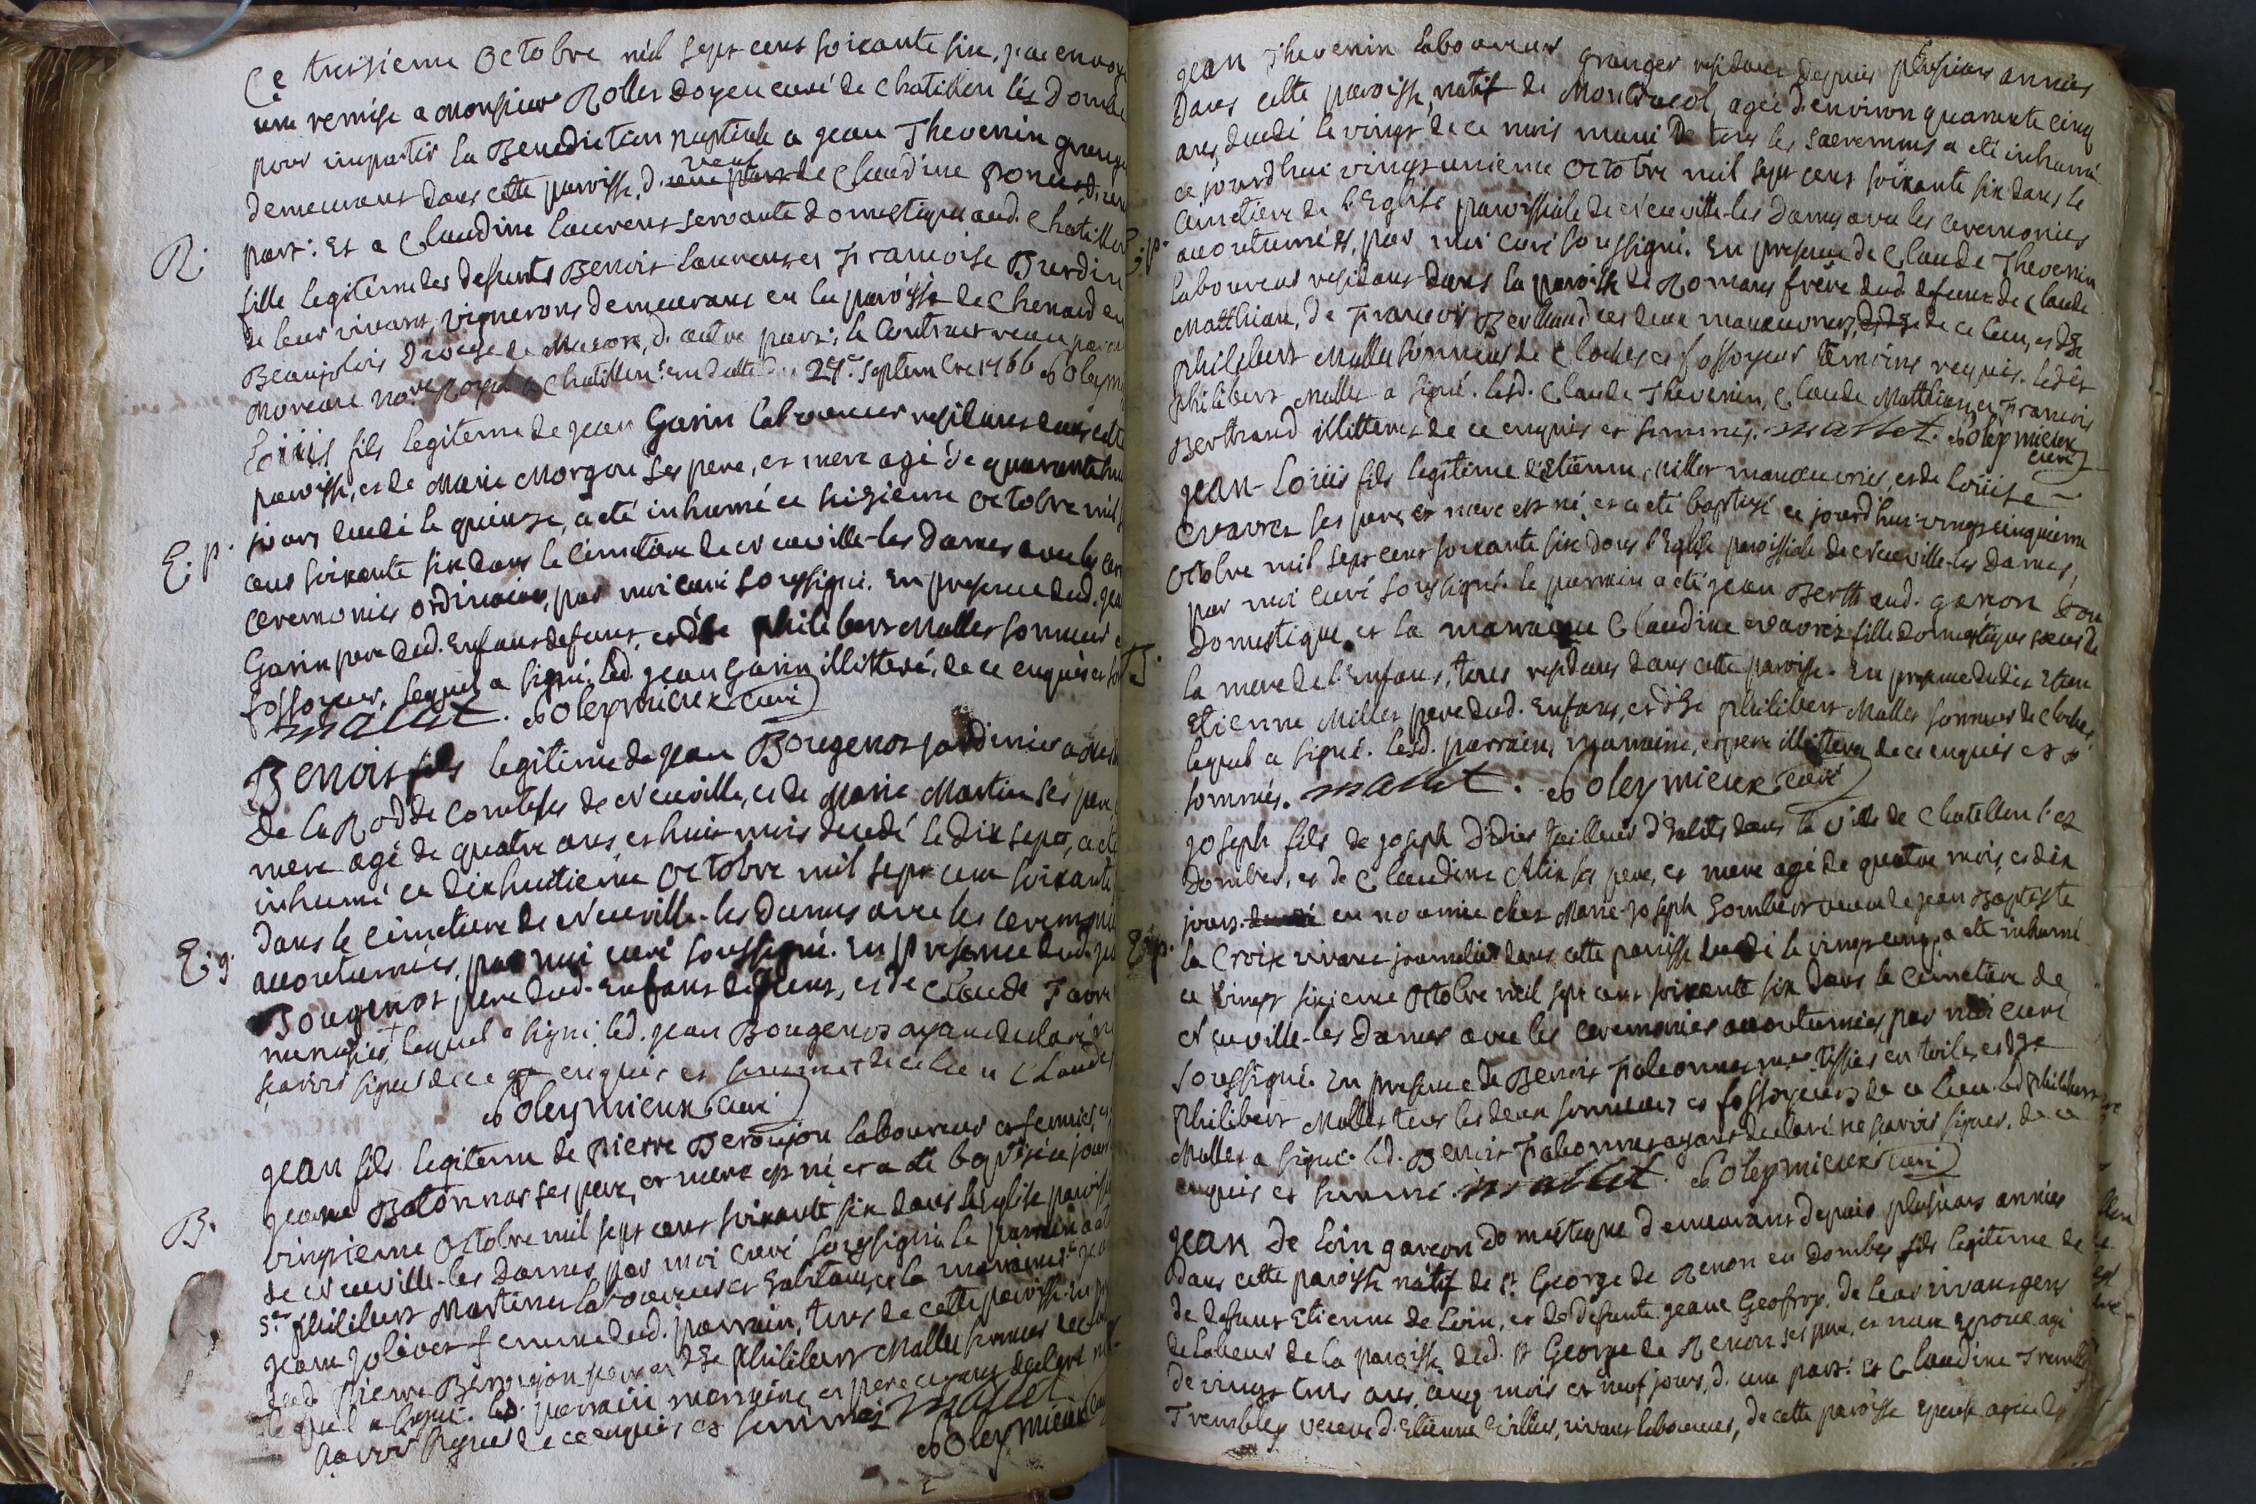 Ce treisieme Octobre mil sept cent soixante six, j'ai envoyé
une remise a Monsieur Rollet doyen curé de Chatillon lès Dombe
pour impartir la Benediction nuptiale a jean Thevenin grange
demeurant dans cette paroisse, veuf de Claudine d'une
R. part: Et a Claudine Laurent servante domestique aud. Chatillon
fille legitime des defunts Benoit Laurent et Francoise Burdin
de leur vivant, vignerons demeurans en la paroisse de Chenard en
Beaujolois Diocese de Macon, d. autre part: le Contract recu par
Moreau no.re Royal a Chatillon en datte du 27.e septembre 1766 Soleym
Loüis fils legitime de jean Garin laboureur residant dans cette
paroisse, et de Marie Morgon ses pere, et mere agé de quarante huit
E. p. jours decedé le quinze, a été inhumé ce seizieme Octobre mil s
cent soixante six dans le Cimetiere de Neuville-les Dames avec les cere
ceremonies ordinaires, par moi curé soussigné. En presence dud. jea
Garin pere dud. Enfant defunt, et de philibert Mallet sonneur e
fossoyeur, lequel a signé. led. jean Garin illitteré, de ce enquis et so
mallet. Soleymieux curé
Benoit fils legitime de jean Bougenot jardinier a
de Comtesses de Neuville, et de Marie Martin ses pere,
mere agé de quatre ans et huit mois decedé le dix sept, a ete
inhumé ce dix huitieme Octobre mil sept cent soixante
dans le cimetiere de Neuville-les Dames avec les ceremonies
E. g. accoutumées, par moi curé soussigné. En presence dud. jea
Bougenot pere dud. Enfant defunt, et de Claude Favre
menusier, lequel a signé. led. jean Bougenot ayant declaré ne
scavoir signer de ce enquis et sommé de ce lieu Claude
Soleymieux curé
jean fils legitime de Pierre Beroujon laboureur et fermier, et
jeane Batonnar ses pere, et mere est né et a été baptisé ce jourd
B. vingtieme Octobre mil sept cent soixante six dans l'Eglise paroissi
de Neuville-les Dames par moi curé soussigné. le parrain a été
s.r philibert Martinet laboureur et habitant, et la marraine
jeane jolivet femme dud. parrain, tous de cette paroisse. En pr
dud. Pierre Beroujon pere et philibert Mallet sonneur de
lequel a signé. led. parrain marraine, et pere ayant declaré ne
scavoir signer de ce enquis et sommés mallet
Soleymieux
jean Thevenin laboureur granger residant depuis plusieurs années
Dans cette paroisse, natif de Montracol, agé d'environ quarante cinq
ans, decedé le vingt de ce mois muni de tous les sacremens a été inhumé
ce jourd'hui vingt unieme Octobre mil sept cent soixante six dans le
Cimetiere de l'Eglise paroissiale de Neuville-les Dames avec les ceremonies
E. p. accoutumées, par moi curé soussigné. En presence de Claude Thevenin
laboureur residant dans la paroisse de Romans frère dud. defunt de Claude
Matthian, de Francois Berthaud les deux manœuvres, de ce lieu, et de
philibert Mallet sonneur de Cloches et fossoyeur temoins requis. ledit
philibert Mallet a signé. lesd. Claude Thevenin, Claude Matthian, et Francois
Berthaud illitteres de ce enquis et sommés. mallet. Soleymieux
curé
jean-Loüis fils legitime d'Etienne Millet manœuvrier, et de Loüise
Cravrez ses pere, et mere est né, et a été baptisé ce jourd'hui vingt cinquieme
Octobre mil sept cent soixante six dans l'Eglise paroissiale de Neuville-les Dames,
par moi curé soussigné. le parrain a été jean Berthaud. garcon
Domestique et la marraine Claudine fille domestique sœur de
la mere de l'Enfant, tous residans dans cette paroisse. En presence dudit
Etienne Millet pere dud. Enfant, et de philibert Mallet sonneur de Cloches,
lequel a signé. lesd. parrain, marraine, et pere illitteres de ce enquis et
sommés. mallet. Soleymieux curé
joseph fils de joseph Didier tailleur d'habits dans la ville de Chatillon lès
Dombes, et de Claudine Alix ses pere, et mere agé de quatre mois, et dix
jours en nourrice chez Marie-joseph Gombert veuve de jean Baptiste
E. p. la Croix vivant journalier dans cette paroisse decedé le vingt cinq, a été inhumé
ce vingt sixieme Octobre mil sept cent soixante six dans le cimetiere de
Neuville-les Dames avec les ceremonies accoutumées, par moi curé
soussigné. En presence de Benoit Falconnet, tissier en toile, et de
philibert Mallet tous les deux sonneurs et fossoyeurs de ce lieu. led. philibert
Mallet a signé. led. Benoit Falconnet ayant declaré ne scavoir signer, de ce
enquis et sommé. mallet. Soleymieux curé
jean de Loin garcon Domestique demeurant depuis plusieurs années
dans cette paroisse natif de s.t George de Renon en Dombes fils legitime de
de defunt Etienne de Loin, et de defunte jeane Geofroy. de leur vivant gens
de labeur de la paroisse dud. st George de Renon ses pere, et mere Epoux agé
de vingt trois ans, cinq mois et neuf jours, d. une part: et Claudine
Tremblay veuve d. Etienne vivant laboureur, de cette paroisse epouse agée de